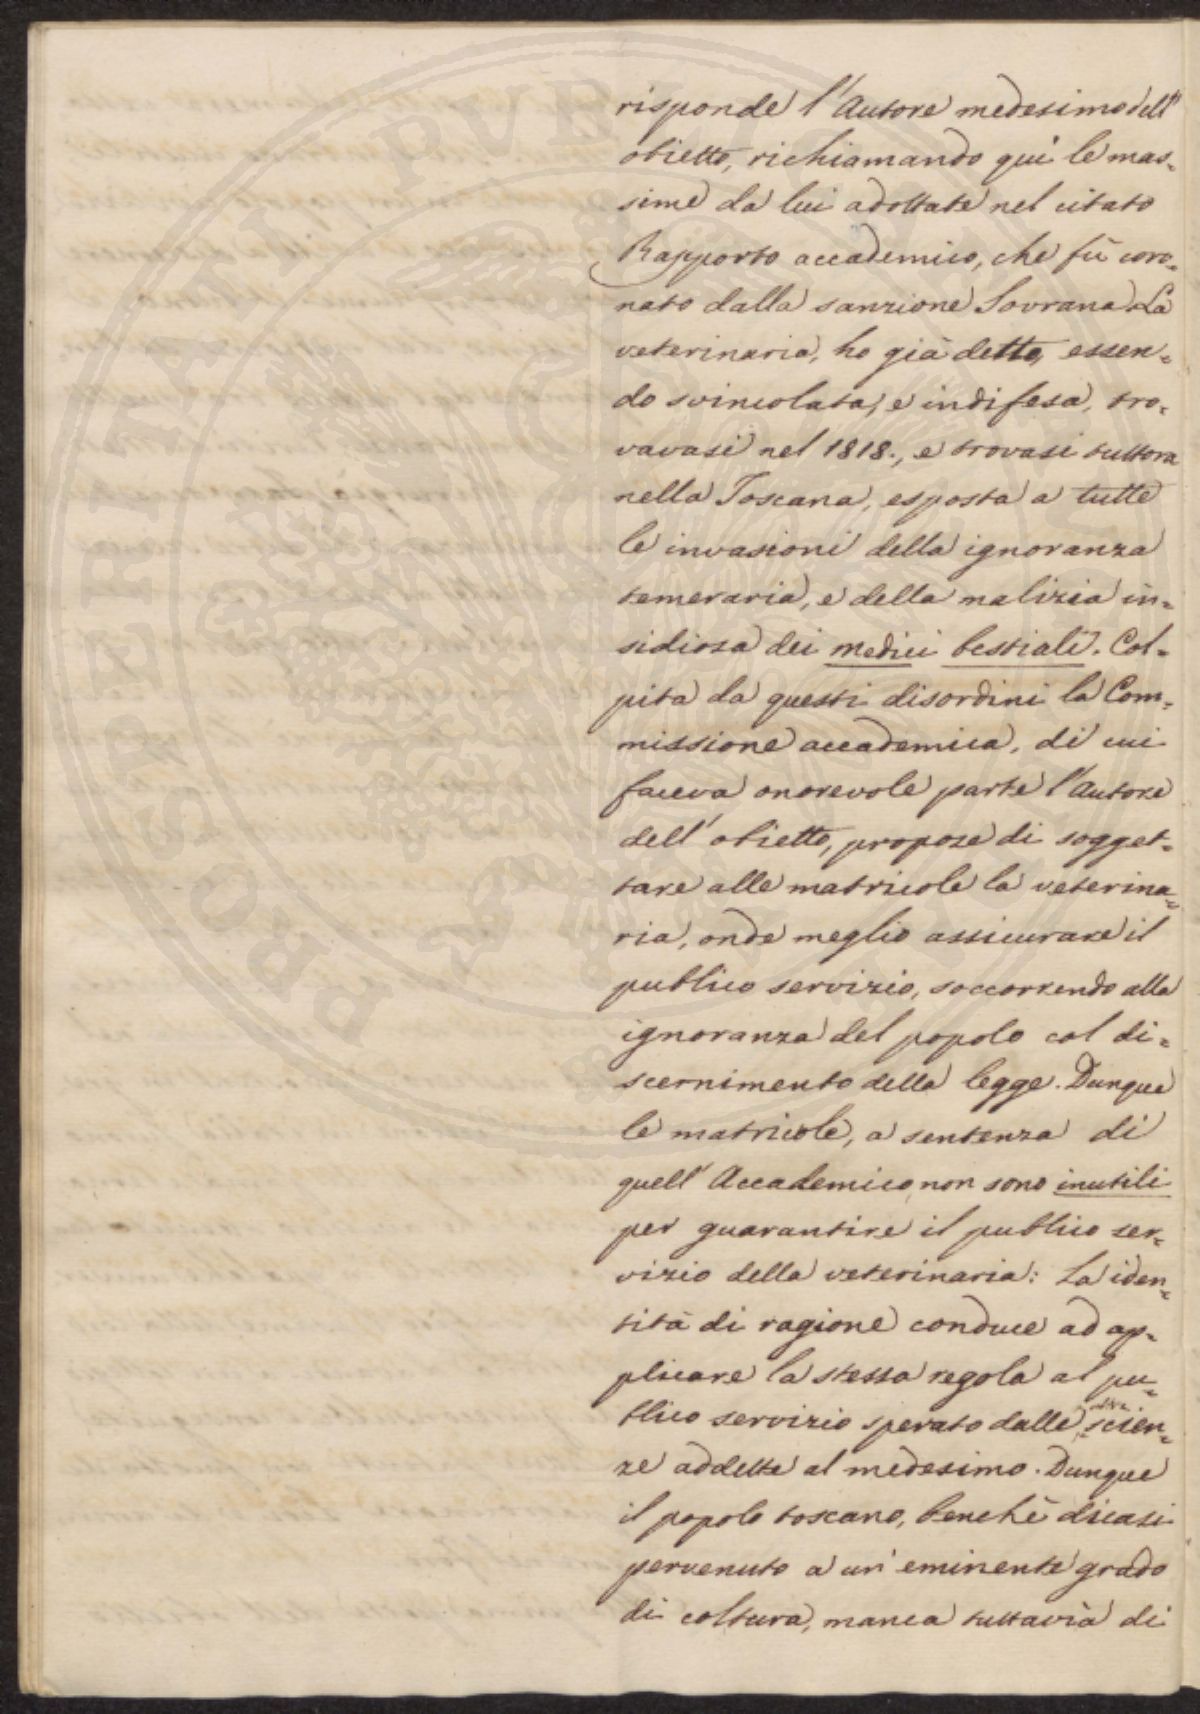 risponde l'Autore medesimo dell'
obietto, richiamando quì le mas=
sime da lui adottate nel citato
Rapporto accademico, che fù coro=
nato dalla sanzione Sovrana. La
veterinaria, ho già detto, essen=
do svincolata, e indifesa, tro=
vavasi nel 1818., e trovasi tuttora
nella Toscana, esposta a tutte
le invasioni della ignoranza
temeraria, e della malizia in=
sidiosa dei medici bestiali. Col=
pita da questi disordini la Com=
missione accademica, di cui
faceva onorevole parte l'Autore
dell'obietto, propose di sogget=
tare alle matricole la veterina=
ria, onde meglio assicurare il
publico servizio, soccorrendo alla
ignoranza del popolo col di=
scernimento della legge. Dunque
le matricole, a sentenza di
quell'Accademico, non sono inutili
per guarantire il publico ser=
vizio della veterinaria: La iden=
tità di ragione conduce ad ap=
plicare la stessa regola al pu=
blico servizio sperato dalle altre scien=
ze addette al medesimo. Dunque
il popolo toscano, benchè dicasi
pervenuto a un'eminente grado
di coltura, manca tuttavia di
PROSPERITATI PVBLICAE